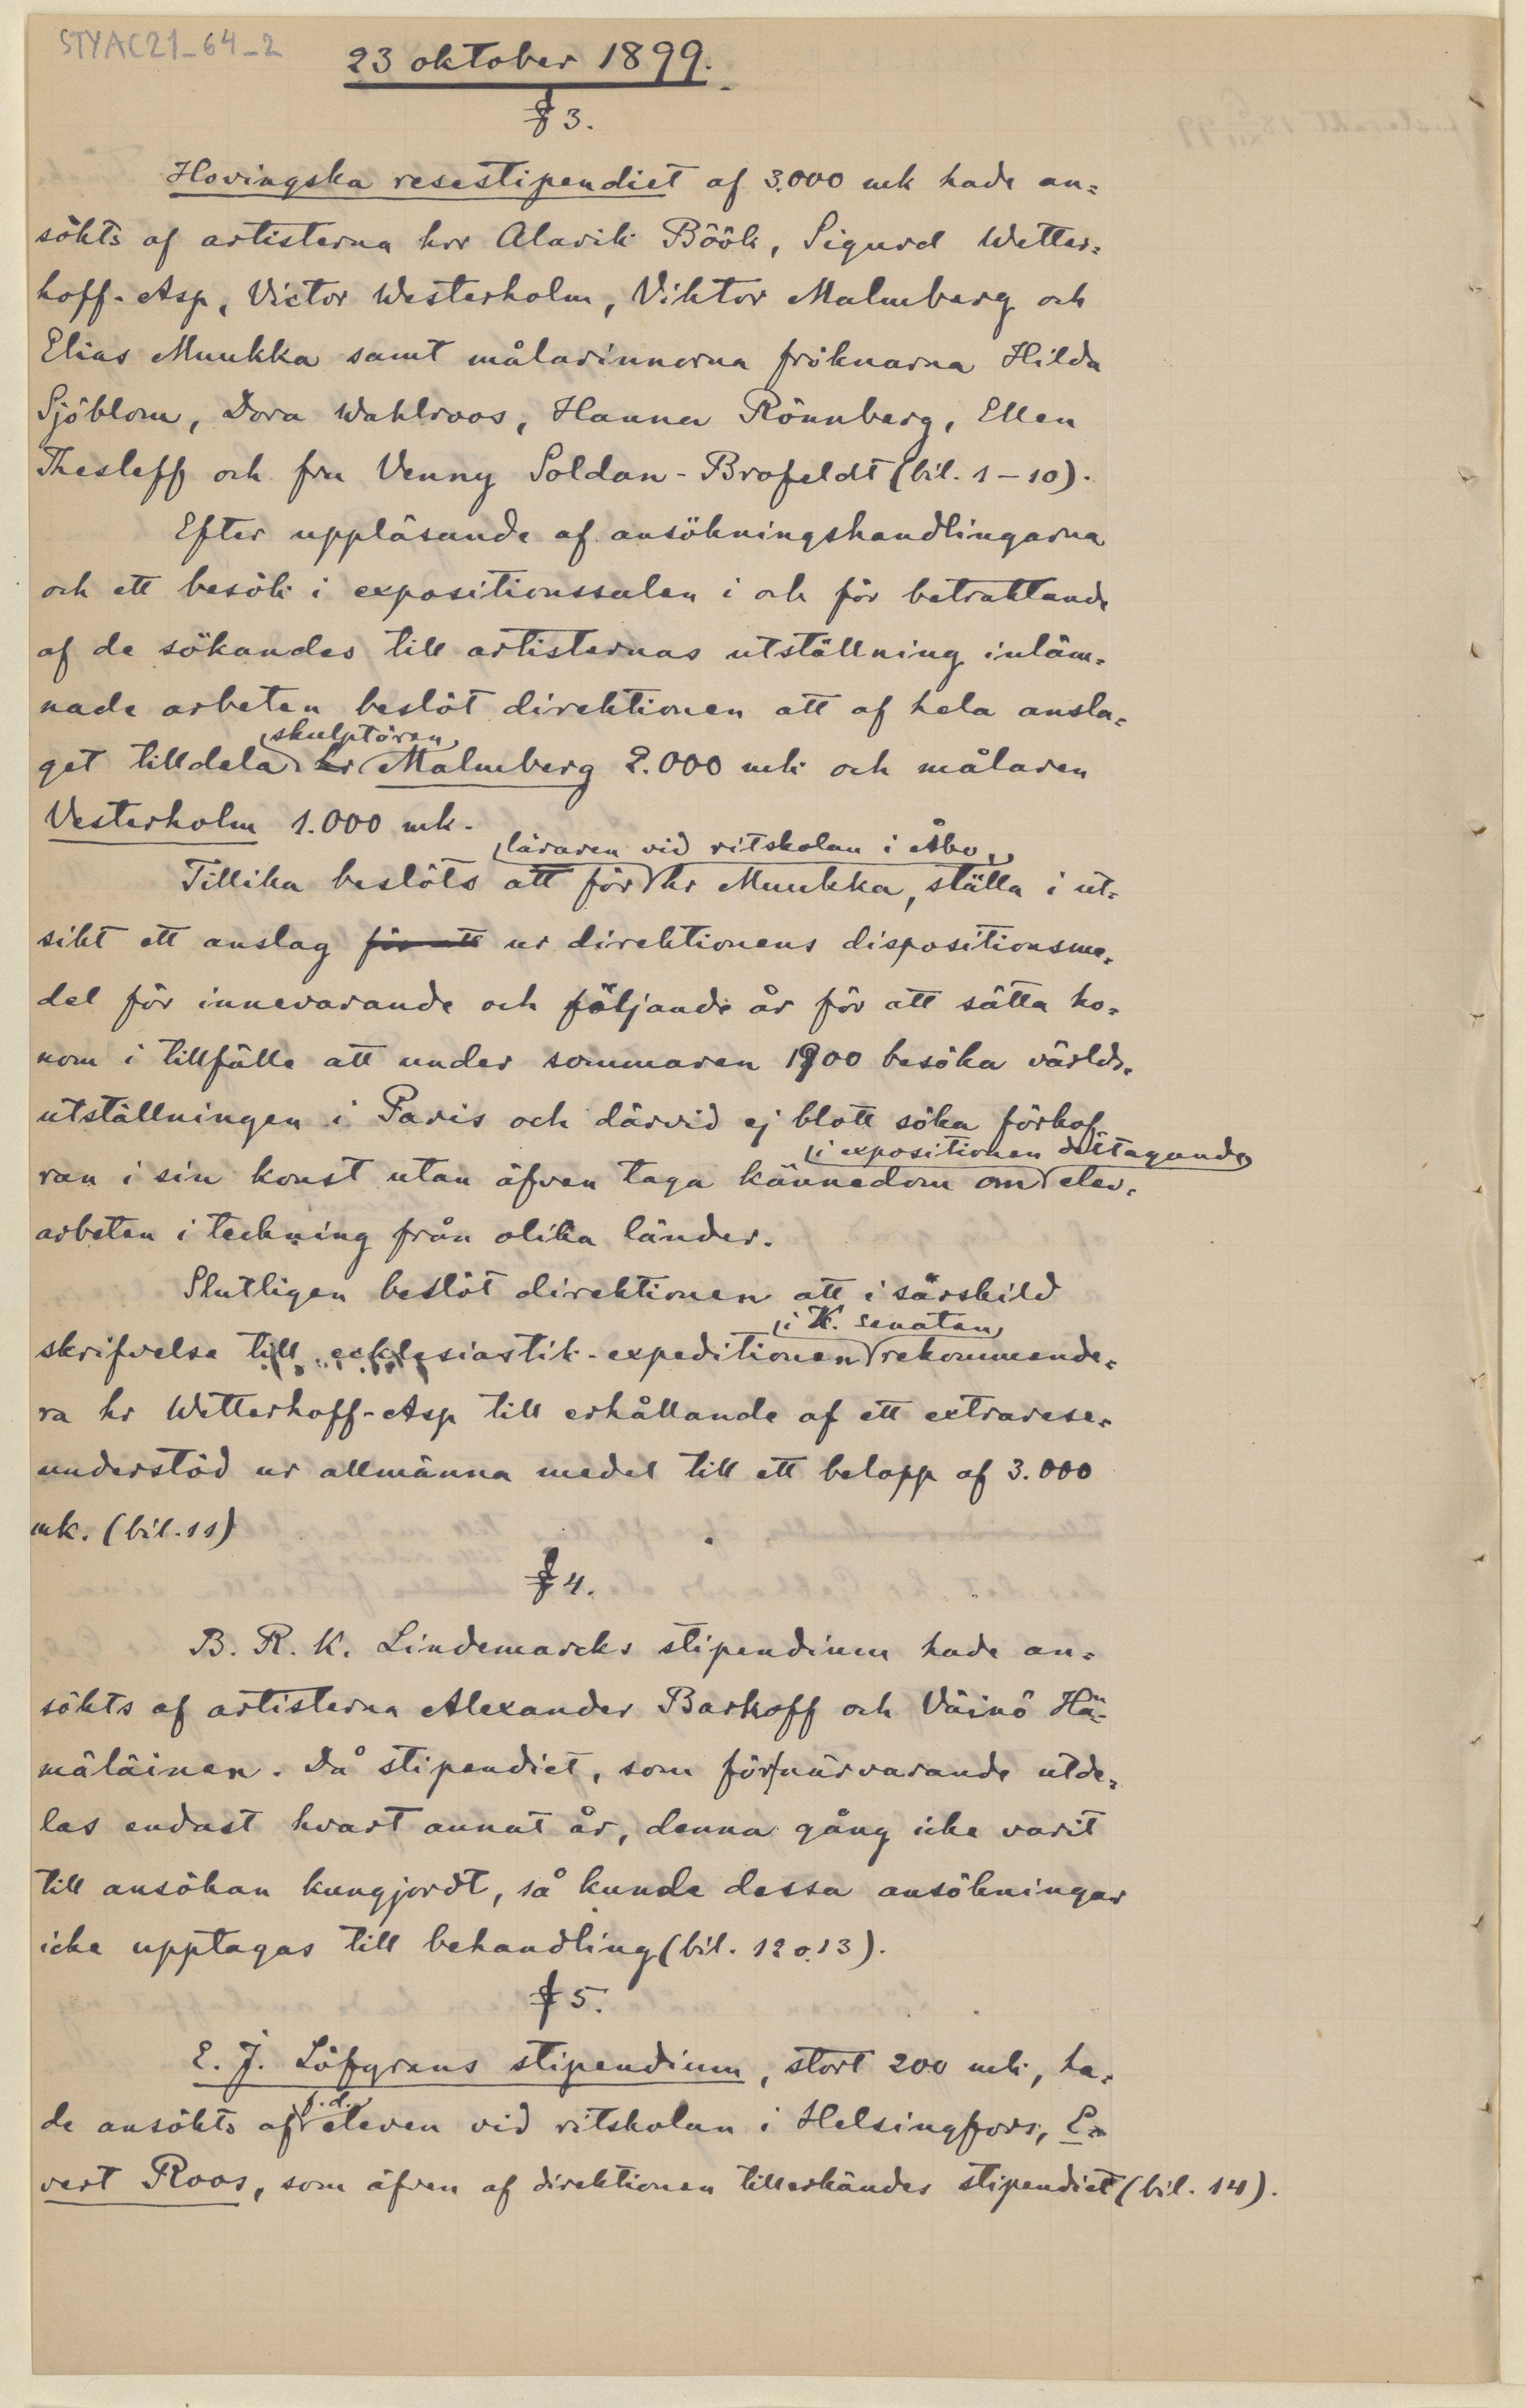 STYAC21_64_2
23 oktober 1899.
§ 3.
Hovingska resestipendiet af 3.000 mk hade an=
sökts af artisterna hrr Alarik Böök, Sigurd Wetter=
hoff-Asp, Victor Westerholm, Viktor Malmberg och
Elias Muukka samt målarinnorna fröknarna Hilda
Sjöblom, Dora Wahlroos, Hanna Rönnberg, Ellen
Thesleff och fru Venny Soldan-Brofeldt (bil. 1-10).
Efter uppläsande af ansökningshandlingarna
och ett besök i expositionssalen i och för betraktande
af de sökandes till artisternas utställning inläm=
nade arbeten beslöt direktionen att af hela ansla=
skulptören
get tilldela hr Malmberg 2.000 mk och målaren
Vesterholm 1.000 mk.
läraren vid ritskolan i Åbo,
Tillika beslöts att för hr Muukka, ställa i ut=
sikt ett anslag för att ur direktionens dispositionsme=
del för innevarande och följande år för att sätta ho=
nom i tillfälle att under sommaren 1900 besöka världs=
utställningen i Paris och därvid ej blott söka förkof=
i expositionen deltagande
ran i sin konst utan äfven taga kännedom om elev=
arbeten i teckning från olika länder.
Slutligen beslöt direktionen att i särskild
i K. senaten
skrifvelse till ecklesiastik-expeditionen rekommende=
ra hr Wetterhoff-Asp till erhållande af ett extrarese=
understöd ur allmänna medel till ett belopp af 3.000
mk. (bil. 11)
§ 4.
B. R. K. Lindemarcks stipendium hade an=
sökts af artisterna Alexander Barkoff och Väinö Hä=
mäläinen. Då stipendiet, som för närvarande utde=
las endast hvart annat år, denna gång icke varit
till ansökan kungjordt, så kunde dessa ansökningar
icke upptagas till behandling (bil. 12 o. 13).
§ 5.
E. J. Löfgrens stipendium, stort 200 mk, ha=
f. d.
de ansökts af eleven vid ritskolan i Helsingfors, E=
vert Roos, som äfven af direktionen tillerkändes stipendiet (bil. 14).